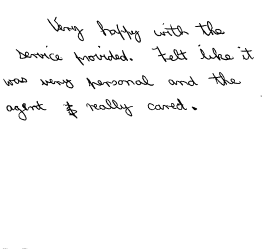 Very happy with the
service provided. Felt like it
was very personal and the
agent really cared.